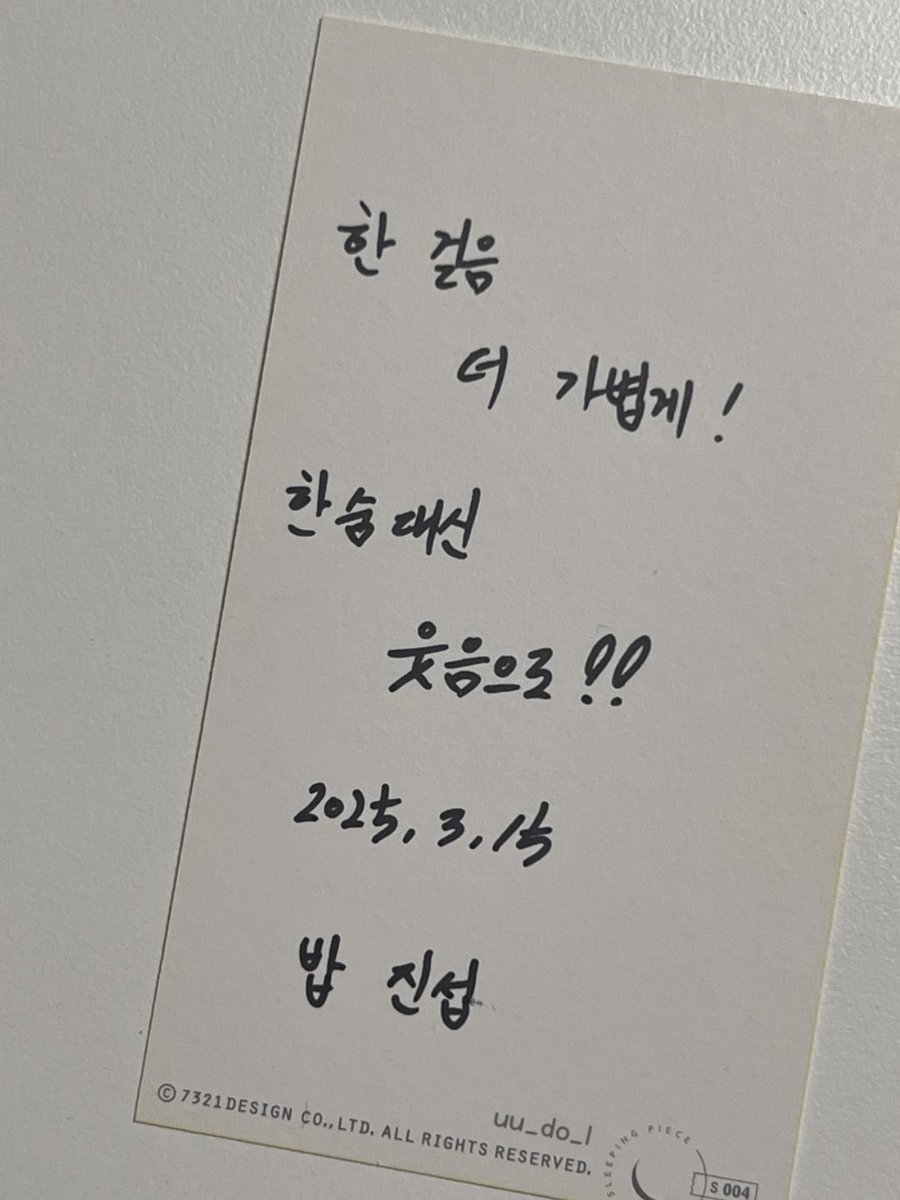 한 걸음
더 가볍게!
한숨대신
웃음으로!!
2025. 3. 15
밥 진섭
ⓒ7321DESIGN CO.,LTD. ALL RIGHTS RESERVED.
uu_do_l
SLEEPING PIECE
S 004